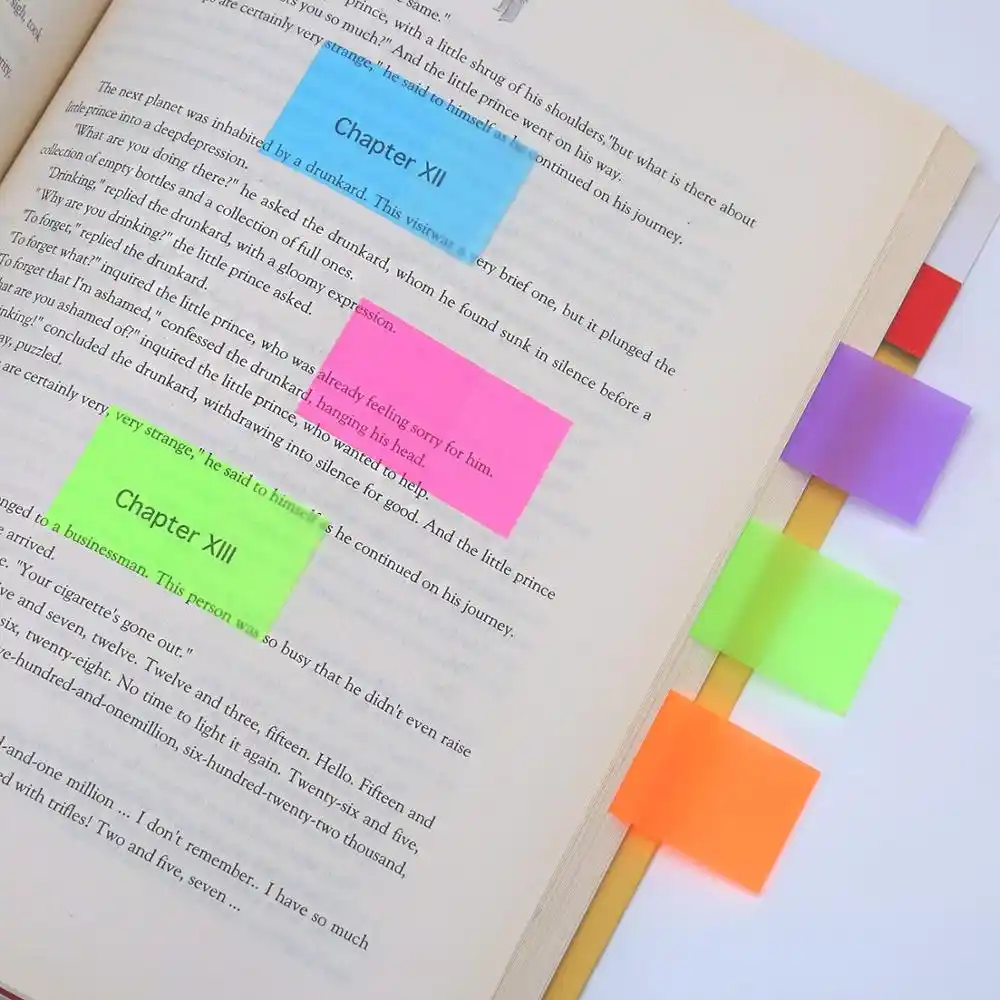 same."
prince, with a little shrug of his shoulders, "but what is there about
ts you so much?" And the little prince went on his way.
ps are certainly very strange," he said to himself as he continued on his journey.
Chapter XII
The next planet was inhabited by a drunkard. This visitwas a very brief one, but it plunged the
little prince into a deepdepression.
"What are you doing there?" he asked the drunkard, whom he found sunk in silence before a
collection of empty bottles and a collection of full ones.
"Drinking," replied the drunkard, with a gloomy expression.
"Why are you drinking?" the little prince asked.
"To forget," replied the drunkard.
"To forget what?" inquired the little prince, who was already feeling sorry for him.
"To forget that I'm ashamed," confessed the drunkard, hanging his head.
hat are you ashamed of?" inquired the little prince, who wanted to help.
inking!" concluded the drunkard, withdrawing into silence for good. And the little prince
ay, puzzled.
are certainly very, very strange," he said to himself as he continued on his journey.
Chapter XIII
onged to a businessman. This person was so busy that he didn't even raise
arrived.
e. "Your cigarette's gone out."
ive and seven, twelve. Twelve and three, fifteen. Hello. Fifteen and
six, twenty-eight. No time to light it again. Twenty-six and five,
ve-hundred-and-onemillion, six-hundred-twenty-two thousand,
d-and-one million ... I don't remember.. I have so much
ed with trifles! Two and five, seven ...